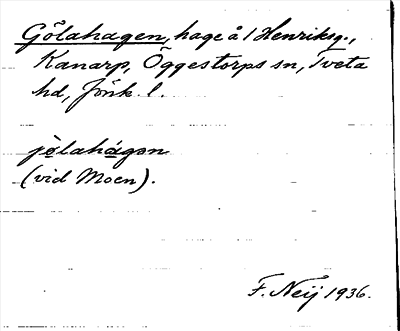 Gölahagen, hage å 1 Henriksg.,
Kanarp, Öggestorps sn, Tveta
hd, Jönk. l.
jölahágən
(vid Moen).
F. Neij 1936.